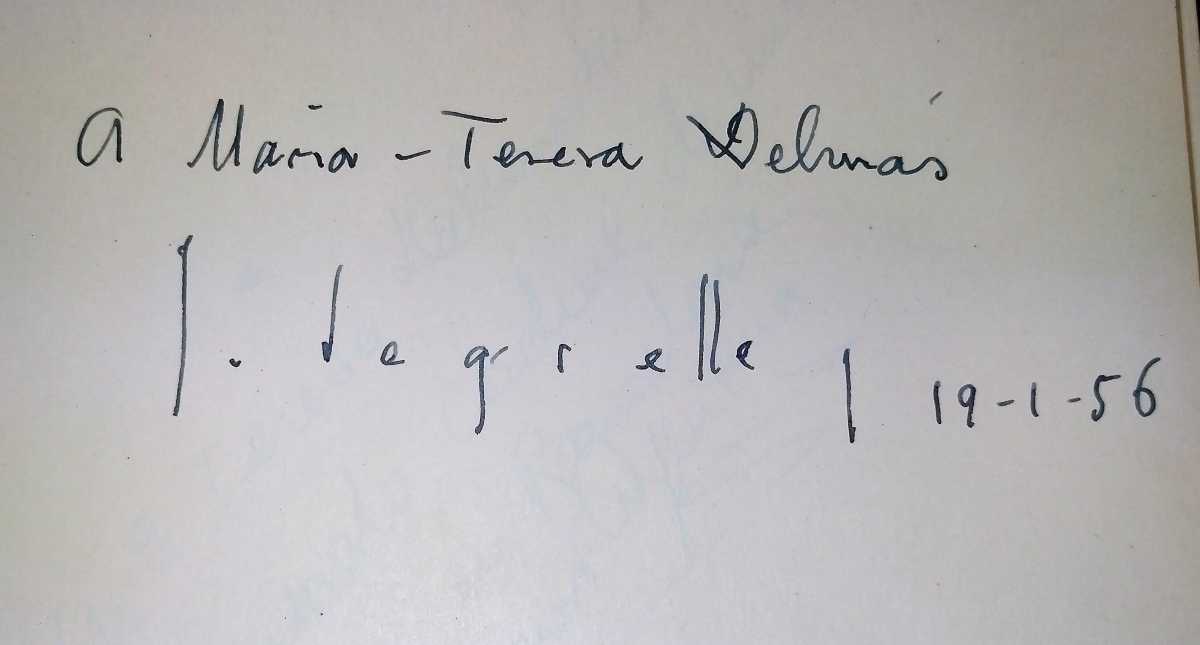 A María-Teresa Delmás
J. de grelle 19-1-56